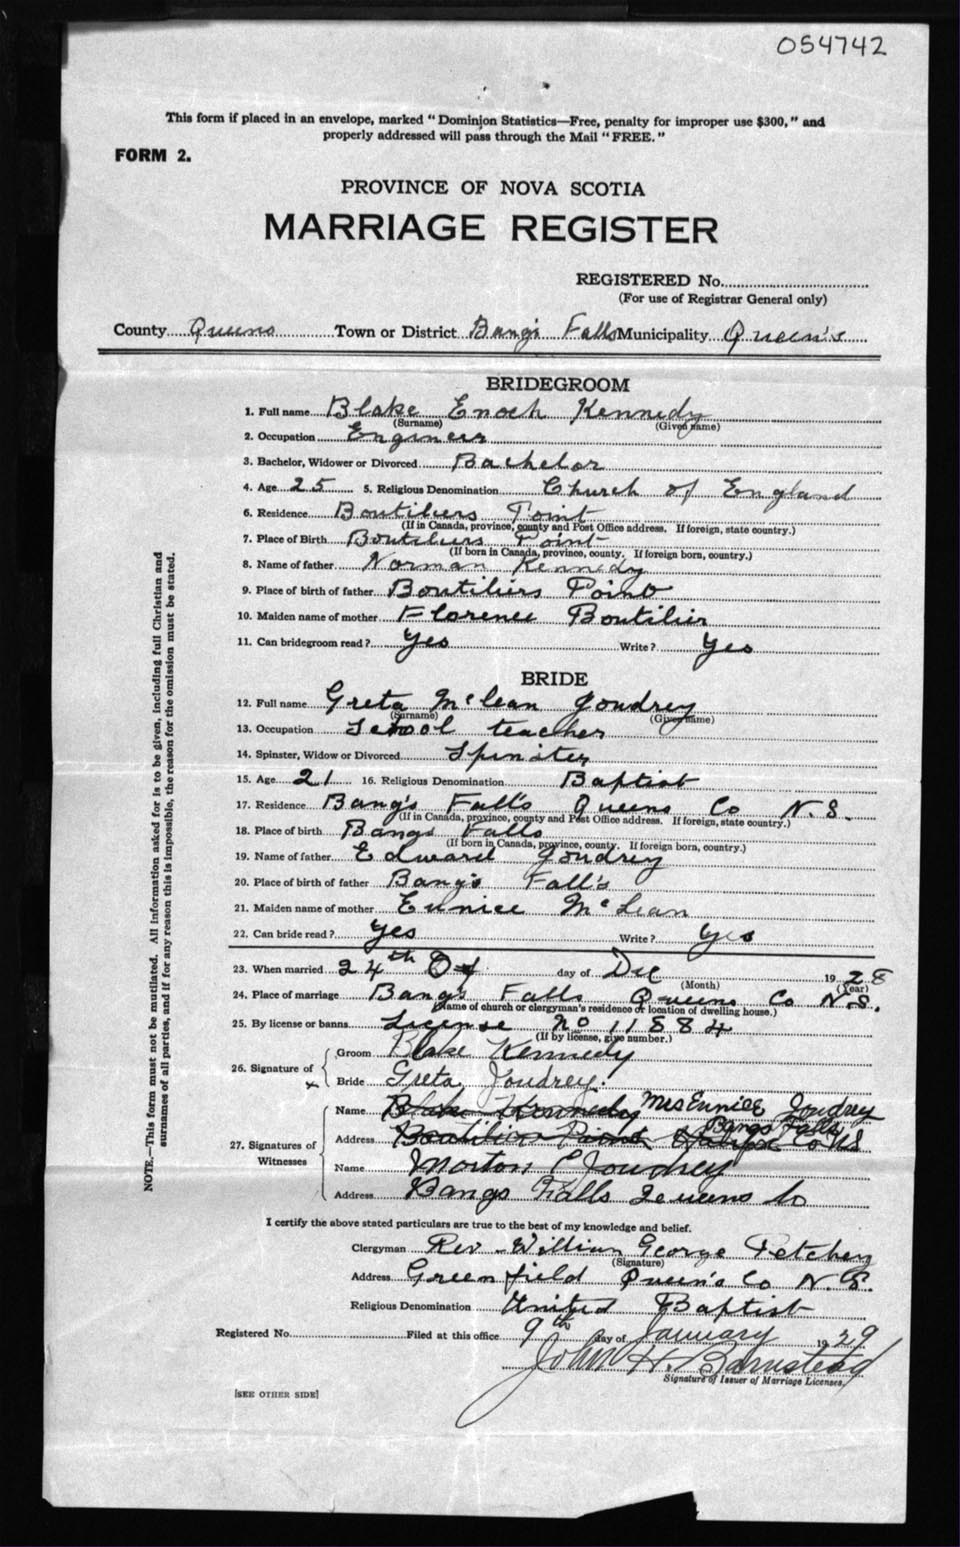 054742
This form if placed in an envelope, marked "Dominion Statistics—Free, penalty for improper use $300," and
properly addressed will pass through the Mail "FREE."
FORM 2.
PROVINCE OF NOVA SCOTIA
MARRIAGE REGISTER
REGISTERED No.
(For use of Registrar General only)
County Queens Town or District Bang's Falls Municipality Queen's
BRIDEGROOM
1. Full name Blake Enoch Kennedy
(Surname) (Given name)
2. Occupation Engineer
3. Bachelor, Widower or Divorced Bachelor
4. Age 25 5. Religious Denomination Church of England
6. Residence Boutiliers Point
(If in Canada, province, county and Post Office address. If foreign, state country.)
7. Place of Birth Boutiliers Point
(If born in Canada, province, county. If foreign born, country.)
8. Name of father Norman Kennedy
9. Place of birth of father Boutiliers Point
10. Maiden name of mother Florence Boutilier
11. Can bridegroom read? Yes Write? Yes
BRIDE
12. Full name Greta McLean Joudrey
(Surname) (Given name)
13. Occupation School teacher
14. Spinster, Widow or Divorced Spinster
15. Age 21 16. Religious Denomination Baptist
17. Residence Bang's Fall's Queens Co N.S.
(If in Canada, province, county and Post Office address. If foreign, state country.)
18. Place of birth Bangs Falls
(If born in Canada, province, county. If foreign born, country.)
19. Name of father Edward Joudrey
20. Place of birth of father Bang's Fall's
21. Maiden name of mother Eunice McLean
22. Can bride read? Yes Write? Yes
23. When married 24th Of day of Dec 1928
(Month) (Year)
24. Place of marriage Bang's Falls Queens Co N.S.
(Name of church or clergyman's residence or location of dwelling house.)
25. By license or banns License No 11884
(If by license, give number.)
26. Signature of Groom Blake Kennedy
x Bride Greta Joudrey.
27. Signatures of Witnesses Name Blake Kennedy Mrs Eunice Joudrey
Bangs Falls
Address Boutiliers Point Halifax Co NS
Name Morton E Joudrey
Address Bangs Falls Queens Co
I certify the above stated particulars are true to the best of my knowledge and belief.
Clergyman Rev. William George Petchey
(Signature)
Address Greenfield Queen's Co N.S.
Religious Denomination United Baptist
Registered No. Filed at this office 9th day of January 1929
John H. Barnstead
Signature of Issuer of Marriage Licenses.
[SEE OTHER SIDE]
NOTE.—This form must not be mutilated. All information asked for is to be given, including full Christian and
surnames of all parties, and if for any reason this is impossible, the reason for the omission must be stated.